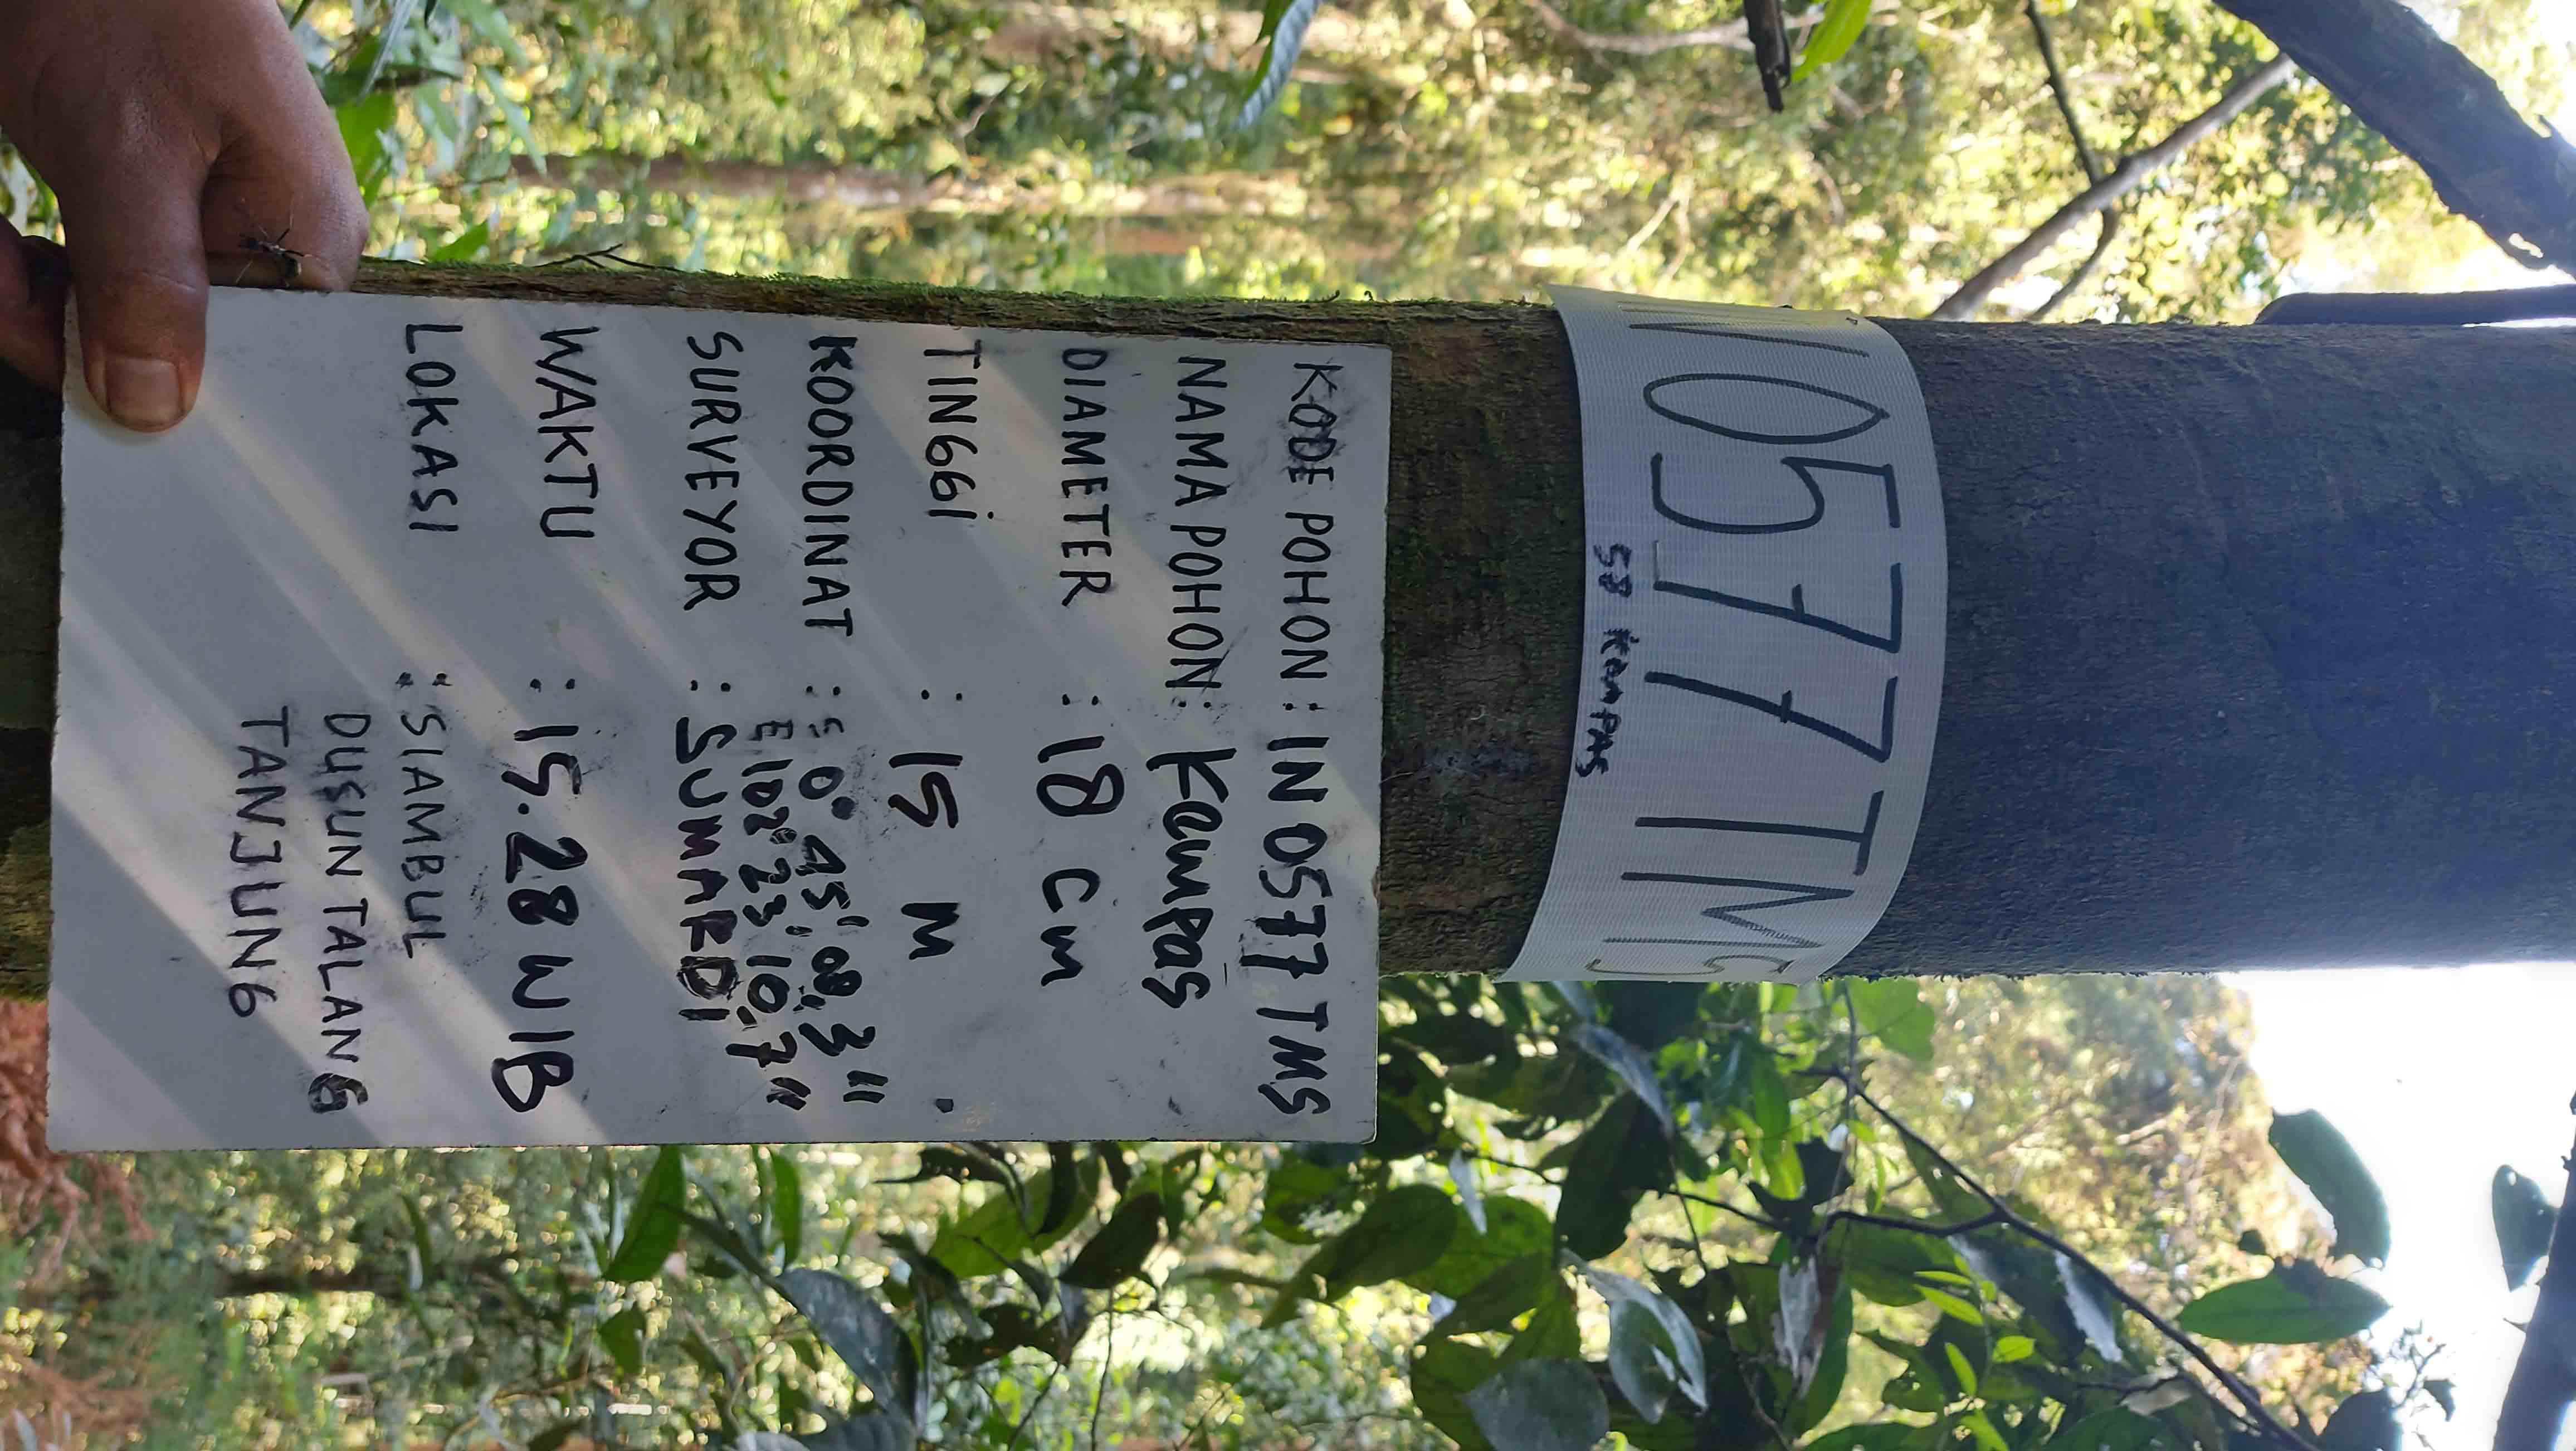 IN 0577 TMS
58 KEMPAS
KODE POHON : IN 0577 TMS
NAMA POHON : Kempas
DIAMETER : 18 cm
TINGGi : 15 M
KOORDINAT : S 0° 45' 08,3"
E 102° 23' 10,7"
SURVEYOR : SUMARDi
WAKTU : 15.28 WIB
LOKASI : SIAMBUL
DUSUN TALANG
TANJUNG